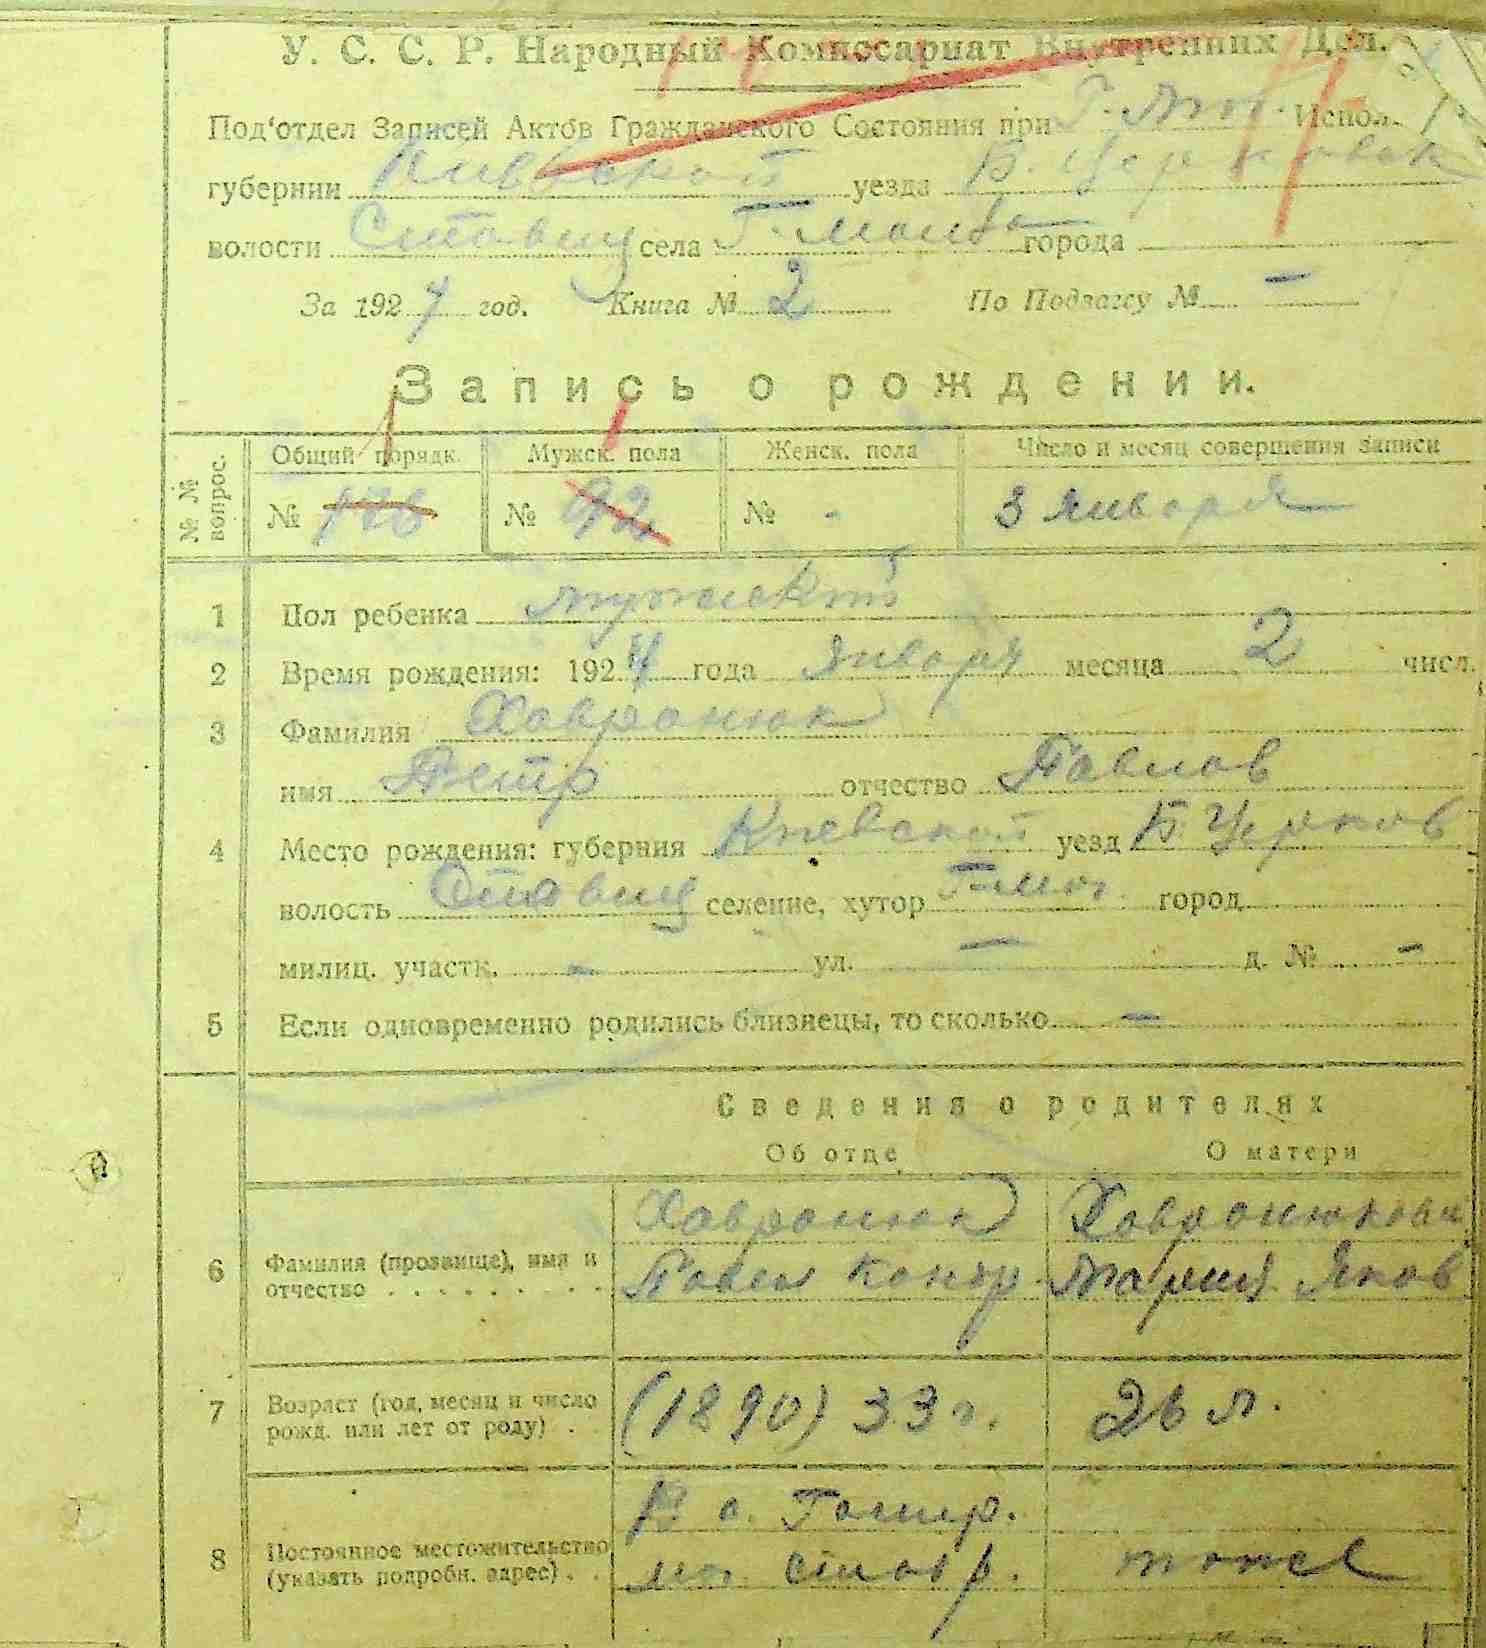 У. С. С. Р. Народный Комиссариат Внутренних Дел.
Под'отдел Записей Актов Гражданского Состояния при Г-Мог. Испол.
губернии Киевской уезда Б. Церковск
волости Ставищ села Г-мого города
За 1924 год. Книга № 2 По Подзагсу № —
Запись о рождении.
№ № вопрос.
Общий порядк. Мужск. пола Женск. пола Число и месяц совершения записи
№ 176 № 92 № - 3 Января
1 Пол ребенка мужской
2 Время рождения: 1924 года Января месяца 2 числ.
3 Фамилия Хавронюк
имя Петр отчество Павлов
4 Место рождения: губерния Киевской уезд Б. Церков
волость Ставищ селение, хутор Г-мог. город
милиц. участк. — ул. — д. № —
5 Если одновременно родились близнецы, то сколько —
Сведения о родителях
Об отце О матери
6 Фамилия (прозвище), имя и отчество Хавронюк Павел Кондр. Хавронюкова Мария Яков
7 Возраст (год, месяц и число рожд. или лет от роду) . (1890) 33 г. 26 л.
8 Постоянное местожительство (указать подробн. адрес) . тоже